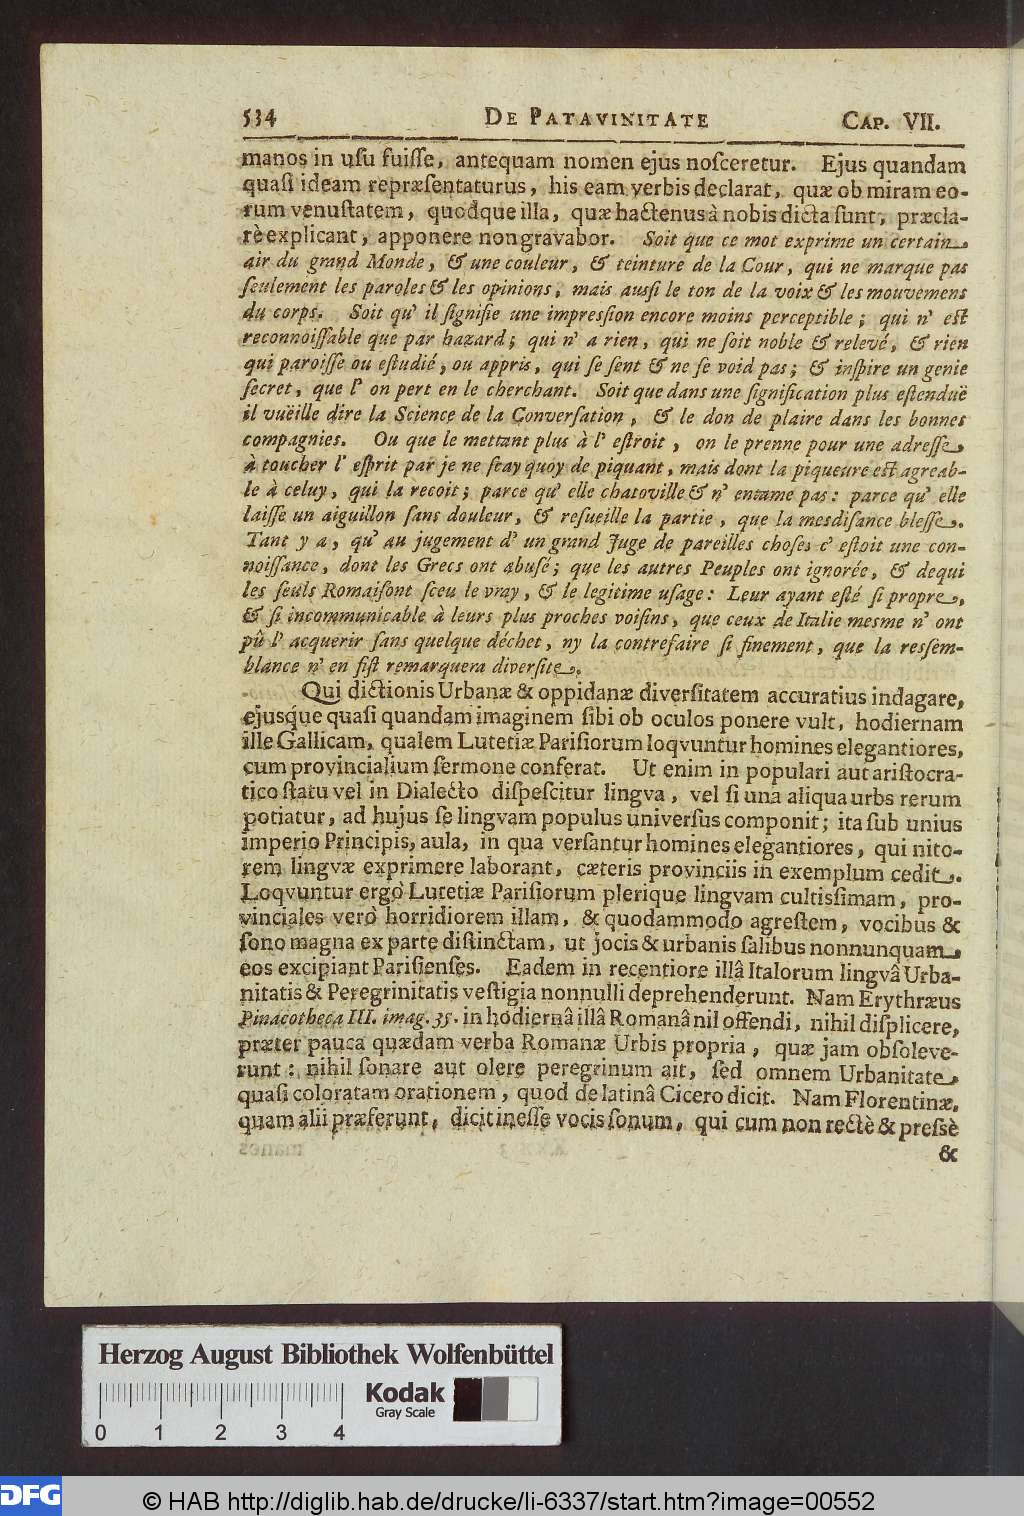 534 DE PATAVINITATE CAP. VII.
manos in uſu fuiſſe, antequam nomen ejus noſceretur. Ejus quandam
quaſi ideam repræſentaturus, his eam verbis declarat, quæ ob miram eo-
rum venuſtatem, quodque illa, quæ hactenus à nobis dicta ſunt, præcla-
rè explicant, apponere non gravabor. Soit que ce mot exprime un certain
air du grand Monde, & une couleur, & teinture de la Cour, qui ne marque pas
ſeulement les paroles & les opinions, mais auſſi le ton de la voix & les mouvemens
du corps. Soit qu' il ſigniſie une impreſſion encore moins perceptible; qui n' eſt
reconnoiſſable que par hazard; qui n' a rien, qui ne ſoit noble & relevé, & rien
qui paroiſſe ou eſtudié, ou appris, qui ſe ſent & ne ſe void pas; & inſpire un genie
ſecret, que l' on pert en le cherchant. Soit que dans une ſignification plus eſtenduë
il vuëille dire la Science de la Converſation, & le don de plaire dans les bonnes
compagnies. Ou que le mettant plus à l' eſtroit, on le prenne pour une adreſſe
à toucher l' eſprit par je ne ſçay quoy de piquant, mais dont la piqueure eſt agreab-
le à celuy, qui la recoit; parce qu' elle chatoville & n' entame pas: parce qu' elle
laiſſe un aiguillon ſans douleur, & reſueille la partie, que la mesdiſance bleſſe.
Tant y a, qu' au jugement d' un grand Juge de pareilles choſes c' eſtoit une con-
noiſſance, dont les Grecs ont abuſé; que les autres Peuples ont ignorée, & dequi
les ſeuls Romaiſont ſceu le vray, & le legitime uſage: Leur ayant eſté ſi propre,
& ſi incommunicable à leurs plus proches voiſins, que ceux de Italie mesme n' ont
pû l' acquerir ſans quelque déchet, ny la contrefaire ſi finement, que la reſſem-
blance n' en fiſt remarquera diverſite.
Qui dictionis Urbanæ & oppidanæ diverſitatem accuratius indagare,
ejusque quaſi quandam imaginem ſibi ob oculos ponere vult, hodiernam
ille Gallicam, qualem Lutetiæ Pariſiorum loqvuntur homines elegantiores,
cum provincialium ſermone conferat. Ut enim in populari aut ariſtocra-
tico ſtatu vel in Dialecto diſpeſcitur lingva, vel ſi una aliqua urbs rerum
potiatur, ad hujus ſe lingvam populus univerſus componit; ita ſub unius
imperio Principis, aula, in qua verſantur homines elegantiores, qui nito-
rem lingvæ exprimere laborant, cæteris provinciis in exemplum cedit.
Loqvuntur ergo Lutetiæ Pariſiorum plerique lingvam cultiſſimam, pro-
vinciales verò horridiorem illam, & quodammodo agreſtem, vocibus &
ſono magna ex parte diſtinctam, ut jocis & urbanis ſalibus nonnunquam
eos excipiant Pariſienſes. Eadem in recentiore illâ Italorum lingvâ Urba-
nitatis & Peregrinitatis veſtigia nonnulli deprehenderunt. Nam Erythræus
Pinacotheca III. imag. 35. in hodiernâ illâ Romanâ nil offendi, nihil diſplicere,
præter pauca quædam verba Romanæ Urbis propria, quæ jam obſoleve-
runt: nihil ſonare aut olere peregrinum ait, ſed omnem Urbanitate,
quaſi coloratam orationem, quod de latinâ Cicero dicit. Nam Florentinæ,
quam alii præferunt, dicit ineſſe vocis ſonum, qui cum non rectè & preſsè
&
Herzog August Bibliothek Wolfenbüttel
Kodak
Gray Scale
0 1 2 3 4
DFG © HAB http://diglib.hab.de/drucke/li-6337/start.htm?image=00552